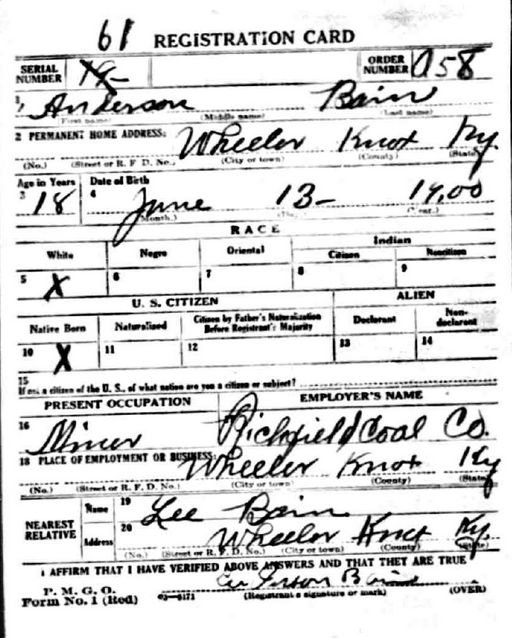 61 REGISTRATION CARD
SERIAL NUMBER ORDER NUMBER A58
1 Anderson Bain
(First name) (Middle name) (Last name)
2 PERMANENT HOME ADDRESS: Wheeler Knox Ky.
(No.) (Street or R. F. D. No.) (City or town) (County) (State)
Age in Years Date of Birth
3 18 4 June 13- 1900
(Month.) (Day.) (Year.)
RACE
White Negro Oriental Indian
Citizen Noncitizen
5 X 6 7 8 9
U. S. CITIZEN ALIEN
Native Born Naturalized Citizen by Father's Naturalization Before Registrant's Majority Declarant Non-declarant
10 X 11 12 13 14
15
If not a citizen of the U. S., of what nation are you a citizen or subject?
PRESENT OCCUPATION EMPLOYER'S NAME
16 Miner Richfield Coal Co.
18 PLACE OF EMPLOYMENT OR BUSINESS: Wheeler Knox Ky
(No.) (Street or R. F. D. No.) (City or town) (County) (State)
NEAREST RELATIVE Name 19 Lee Bain
Address 20 Wheeler Knox Ky.
(No.) (Street or R. F. D. No.) (City or town) (County) (State)
I AFFIRM THAT I HAVE VERIFIED ABOVE ANSWERS AND THAT THEY ARE TRUE
P. M. G. O.
Form No. 1 (Red) 03-6171 (Registrant's signature or mark) (OVER)